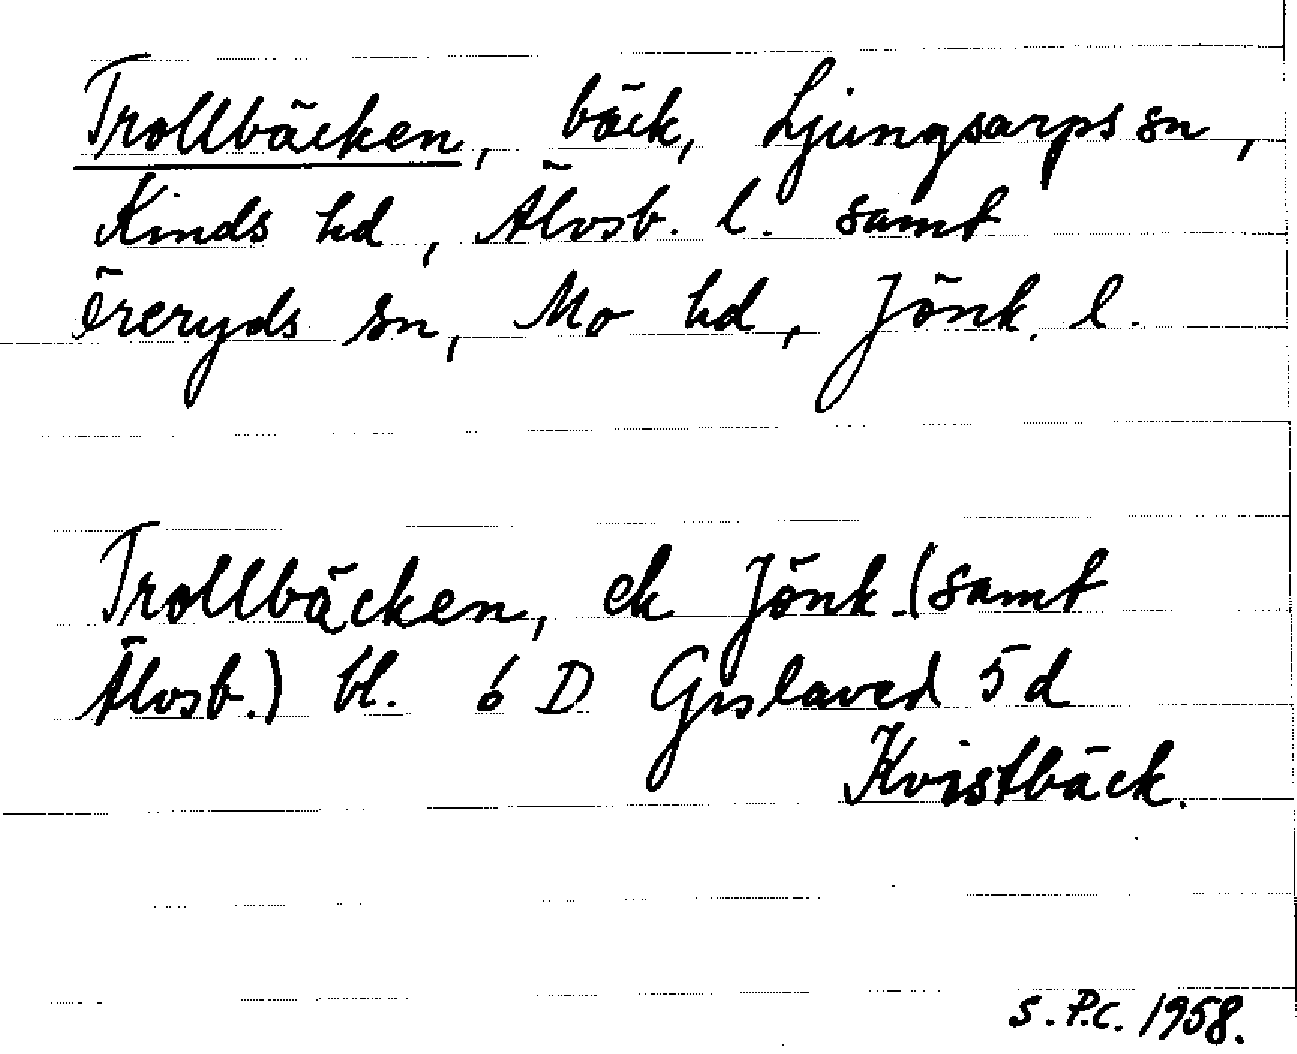 Trollbäcken, bäck, Ljungsarps sn,
Kinds hd, Älvsb. l. samt
Öreryds sn, Mo hd, Jönk. l.
Trollbäcken, ek Jönk. (samt
Älvsb.) bl. 6 D Gislaved 5 d
Kvistbäck.
S. P.C. 1958.